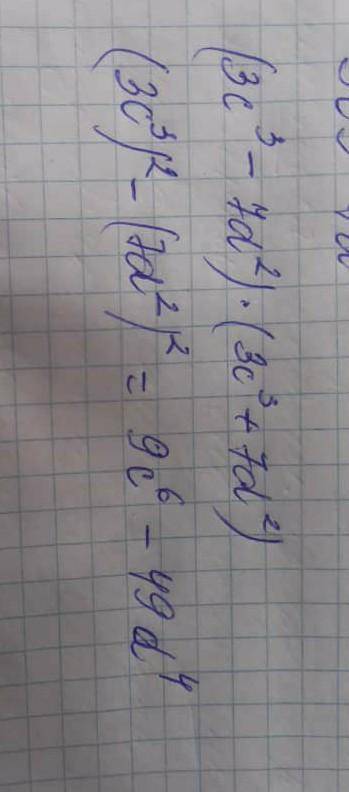 (3c³ - 7d²) · (3c³ + 7d²)
(3c³)² - (7d²)² = 9c⁶ - 49d⁴